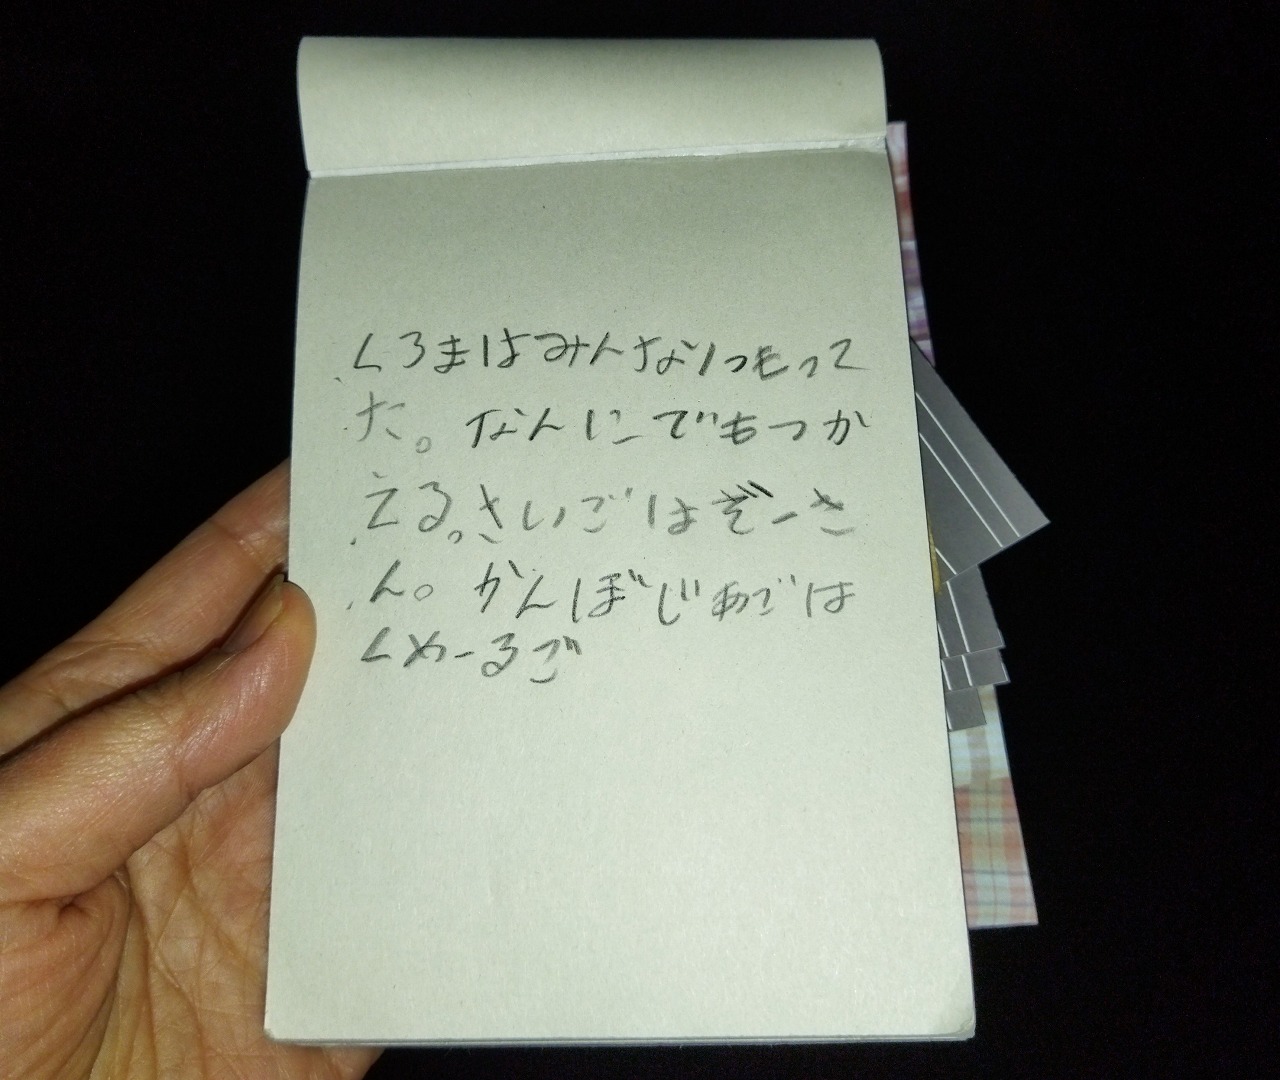 くろまはみんな1つもって
た。なんにでもつか
える。さいごはぞーさ
ん。かんぼじあごは
くめーるご